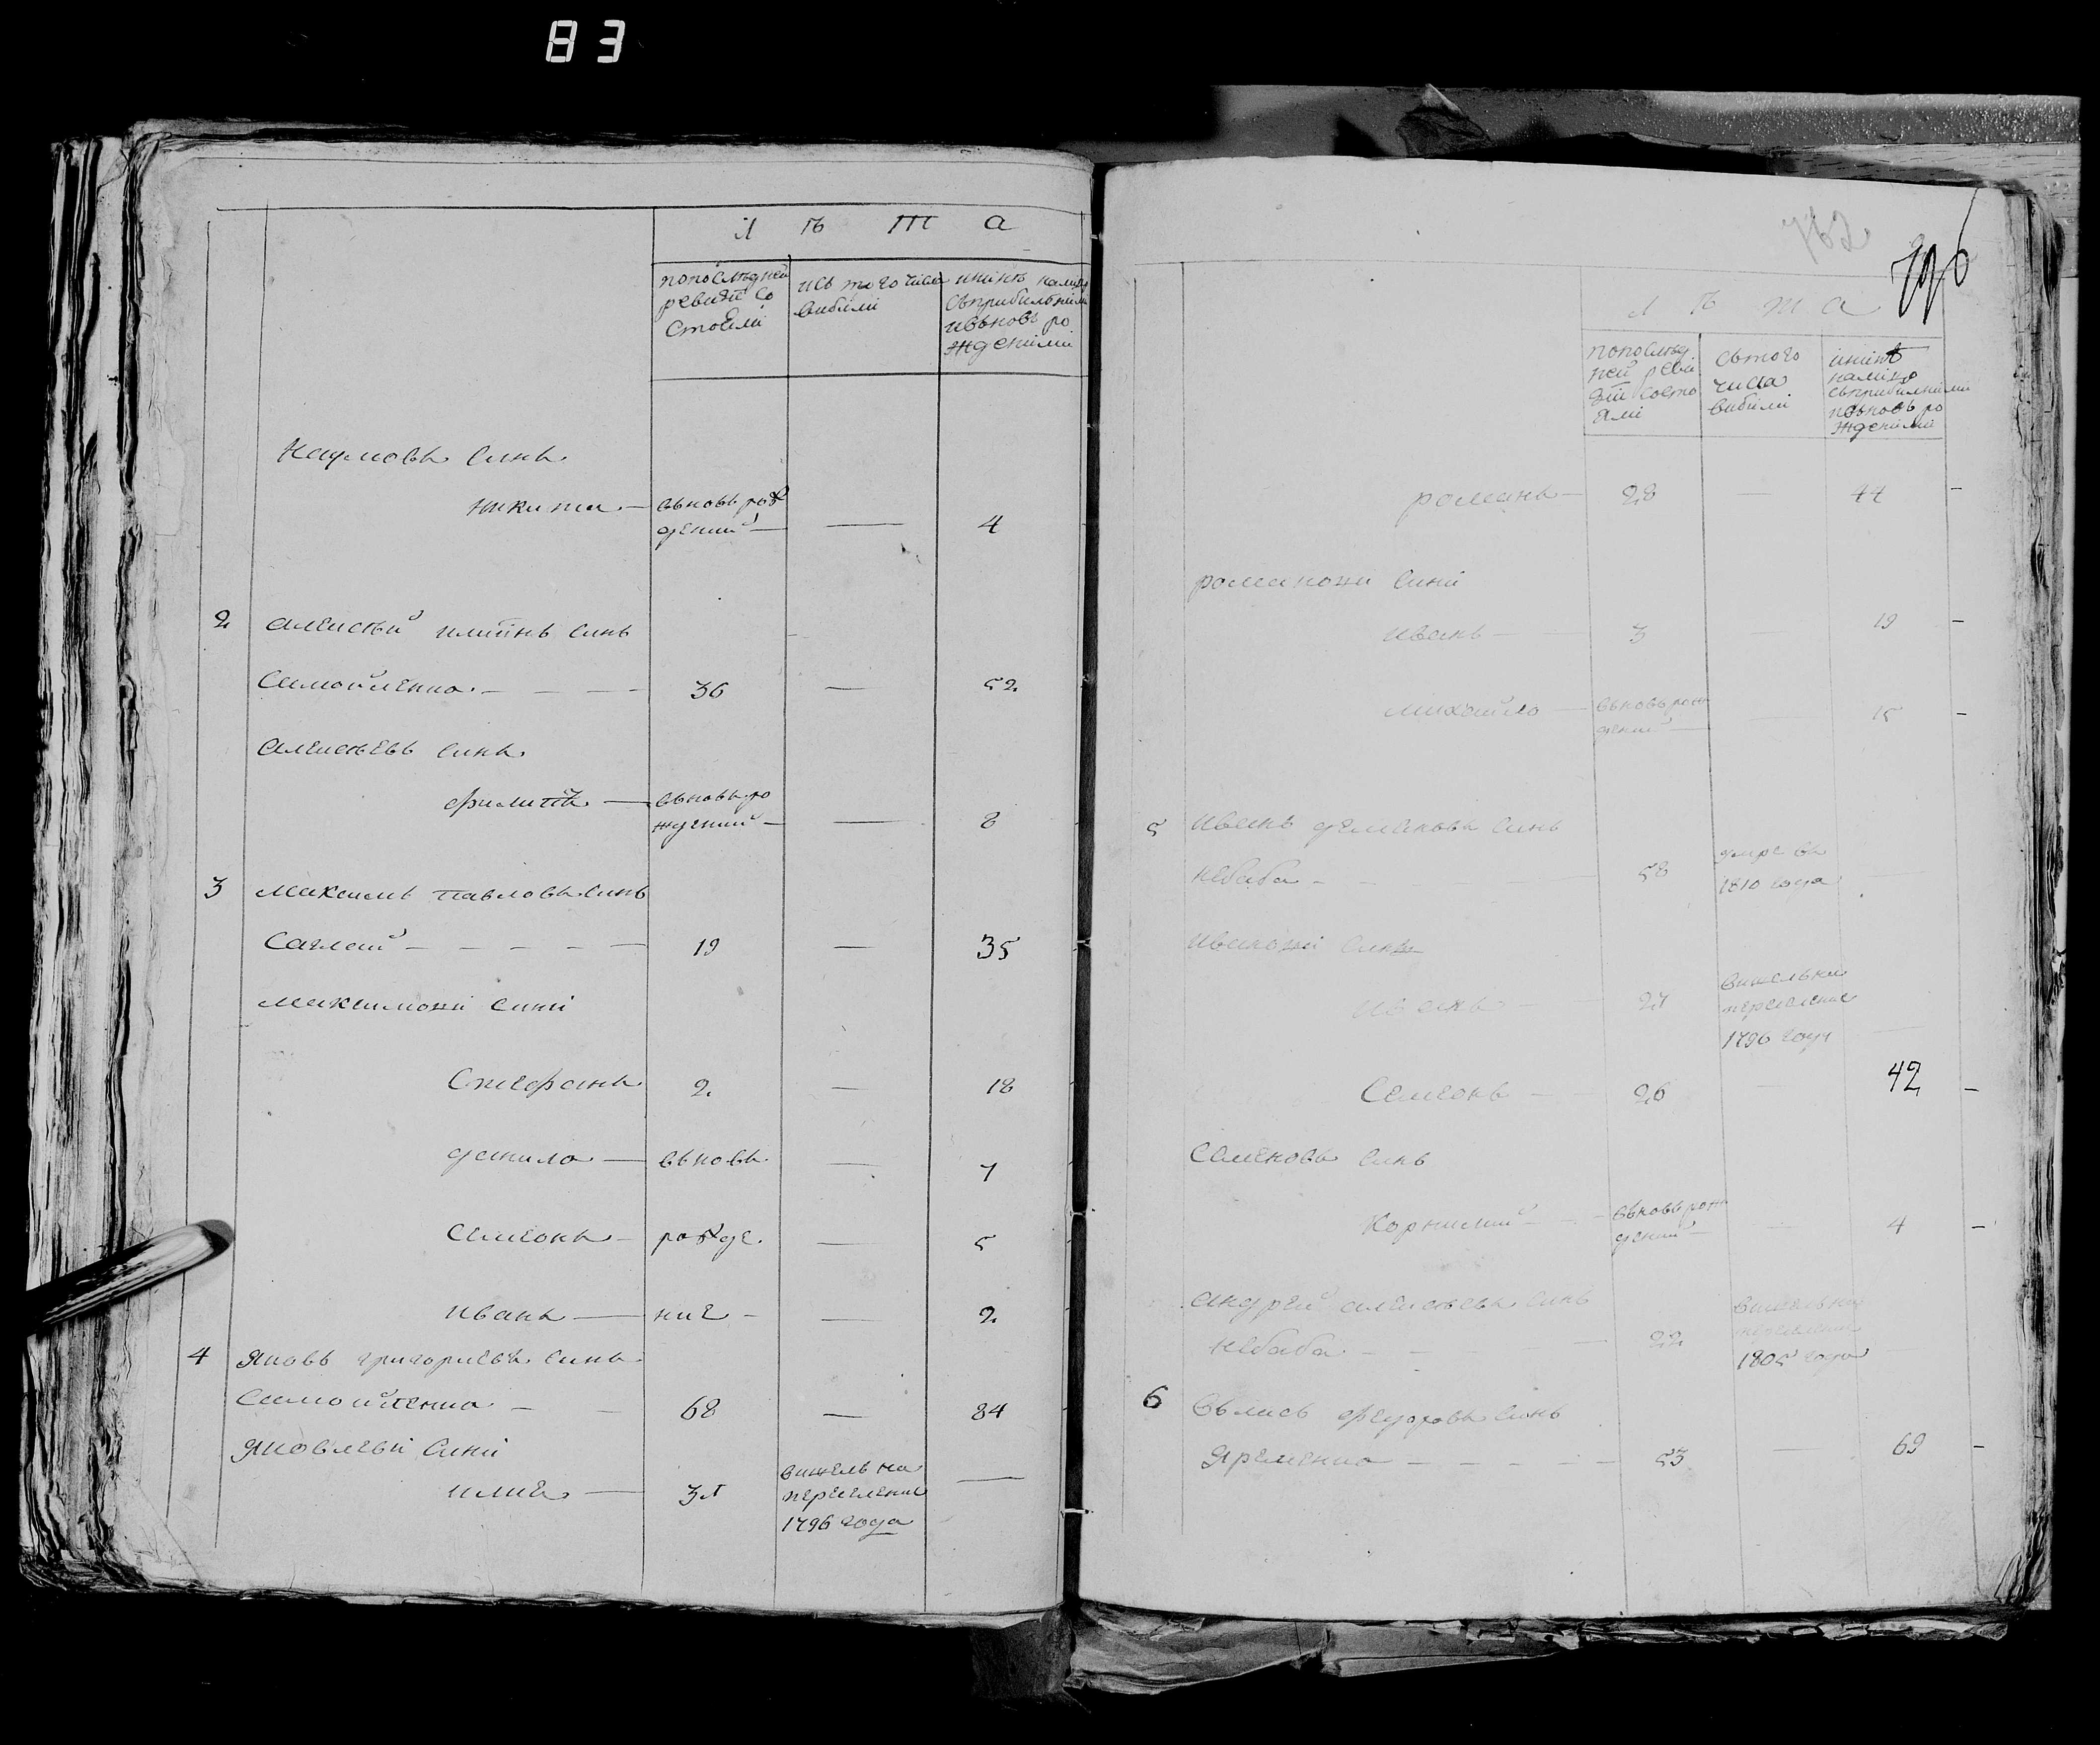 83
Л Ѣ Т А
попослѣдней
ревизіи со
стояли
исъ того числа
вибили
нинѣ налицо
съприбилнимы
ивьновь ро
жденнимы
Наумовъ синъ
никита — вьновь рож
дений — — 4
2 алексѣй илиинъ синъ
Самойленко — 36 — 52
Алексѣевъ синъ
филипъ — вьновь ро
ждений — — 8
3 максимъ павловъ синъ
Саглай — 19 — 35
максимови сини
Стефанъ 2 — 18
данило — вьновь — 7
Семіонъ — рожде — 5
иванъ — ние — — 2
4 Яковъ григориевъ синъ
Самойленко — 68 — 84
Яковлеви сини
илия — вишелъ на —
переселение
1796 года
796
Л Ѣ Т А
попослѣд
ней реви
зіи состо
яли
съ того
числа
вибили
нинѣ
налицо
съприбилними
ивьновь ро
жденними
романъ — 28 — 44 —
романови сини
иванъ — 3 — 19 —
михайло — вьновь рож
дений — — 15 —
5 иванъ демяновъ синъ
Небаба — 58 умре въ
1810 года —
иванови сини
иванъ — 27 вишелъ на
переселение
1796 году —
Семіонъ — 26 — 42 —
Семеновъ синъ
Корнилий — вьновь рож
дений — — 4 —
андрей алексѣевъ синъ
Небаба — 22 вишелъ на
переселение
1805 года —
6 Влась федоровъ синъ
Яременко — 53 — 69 —